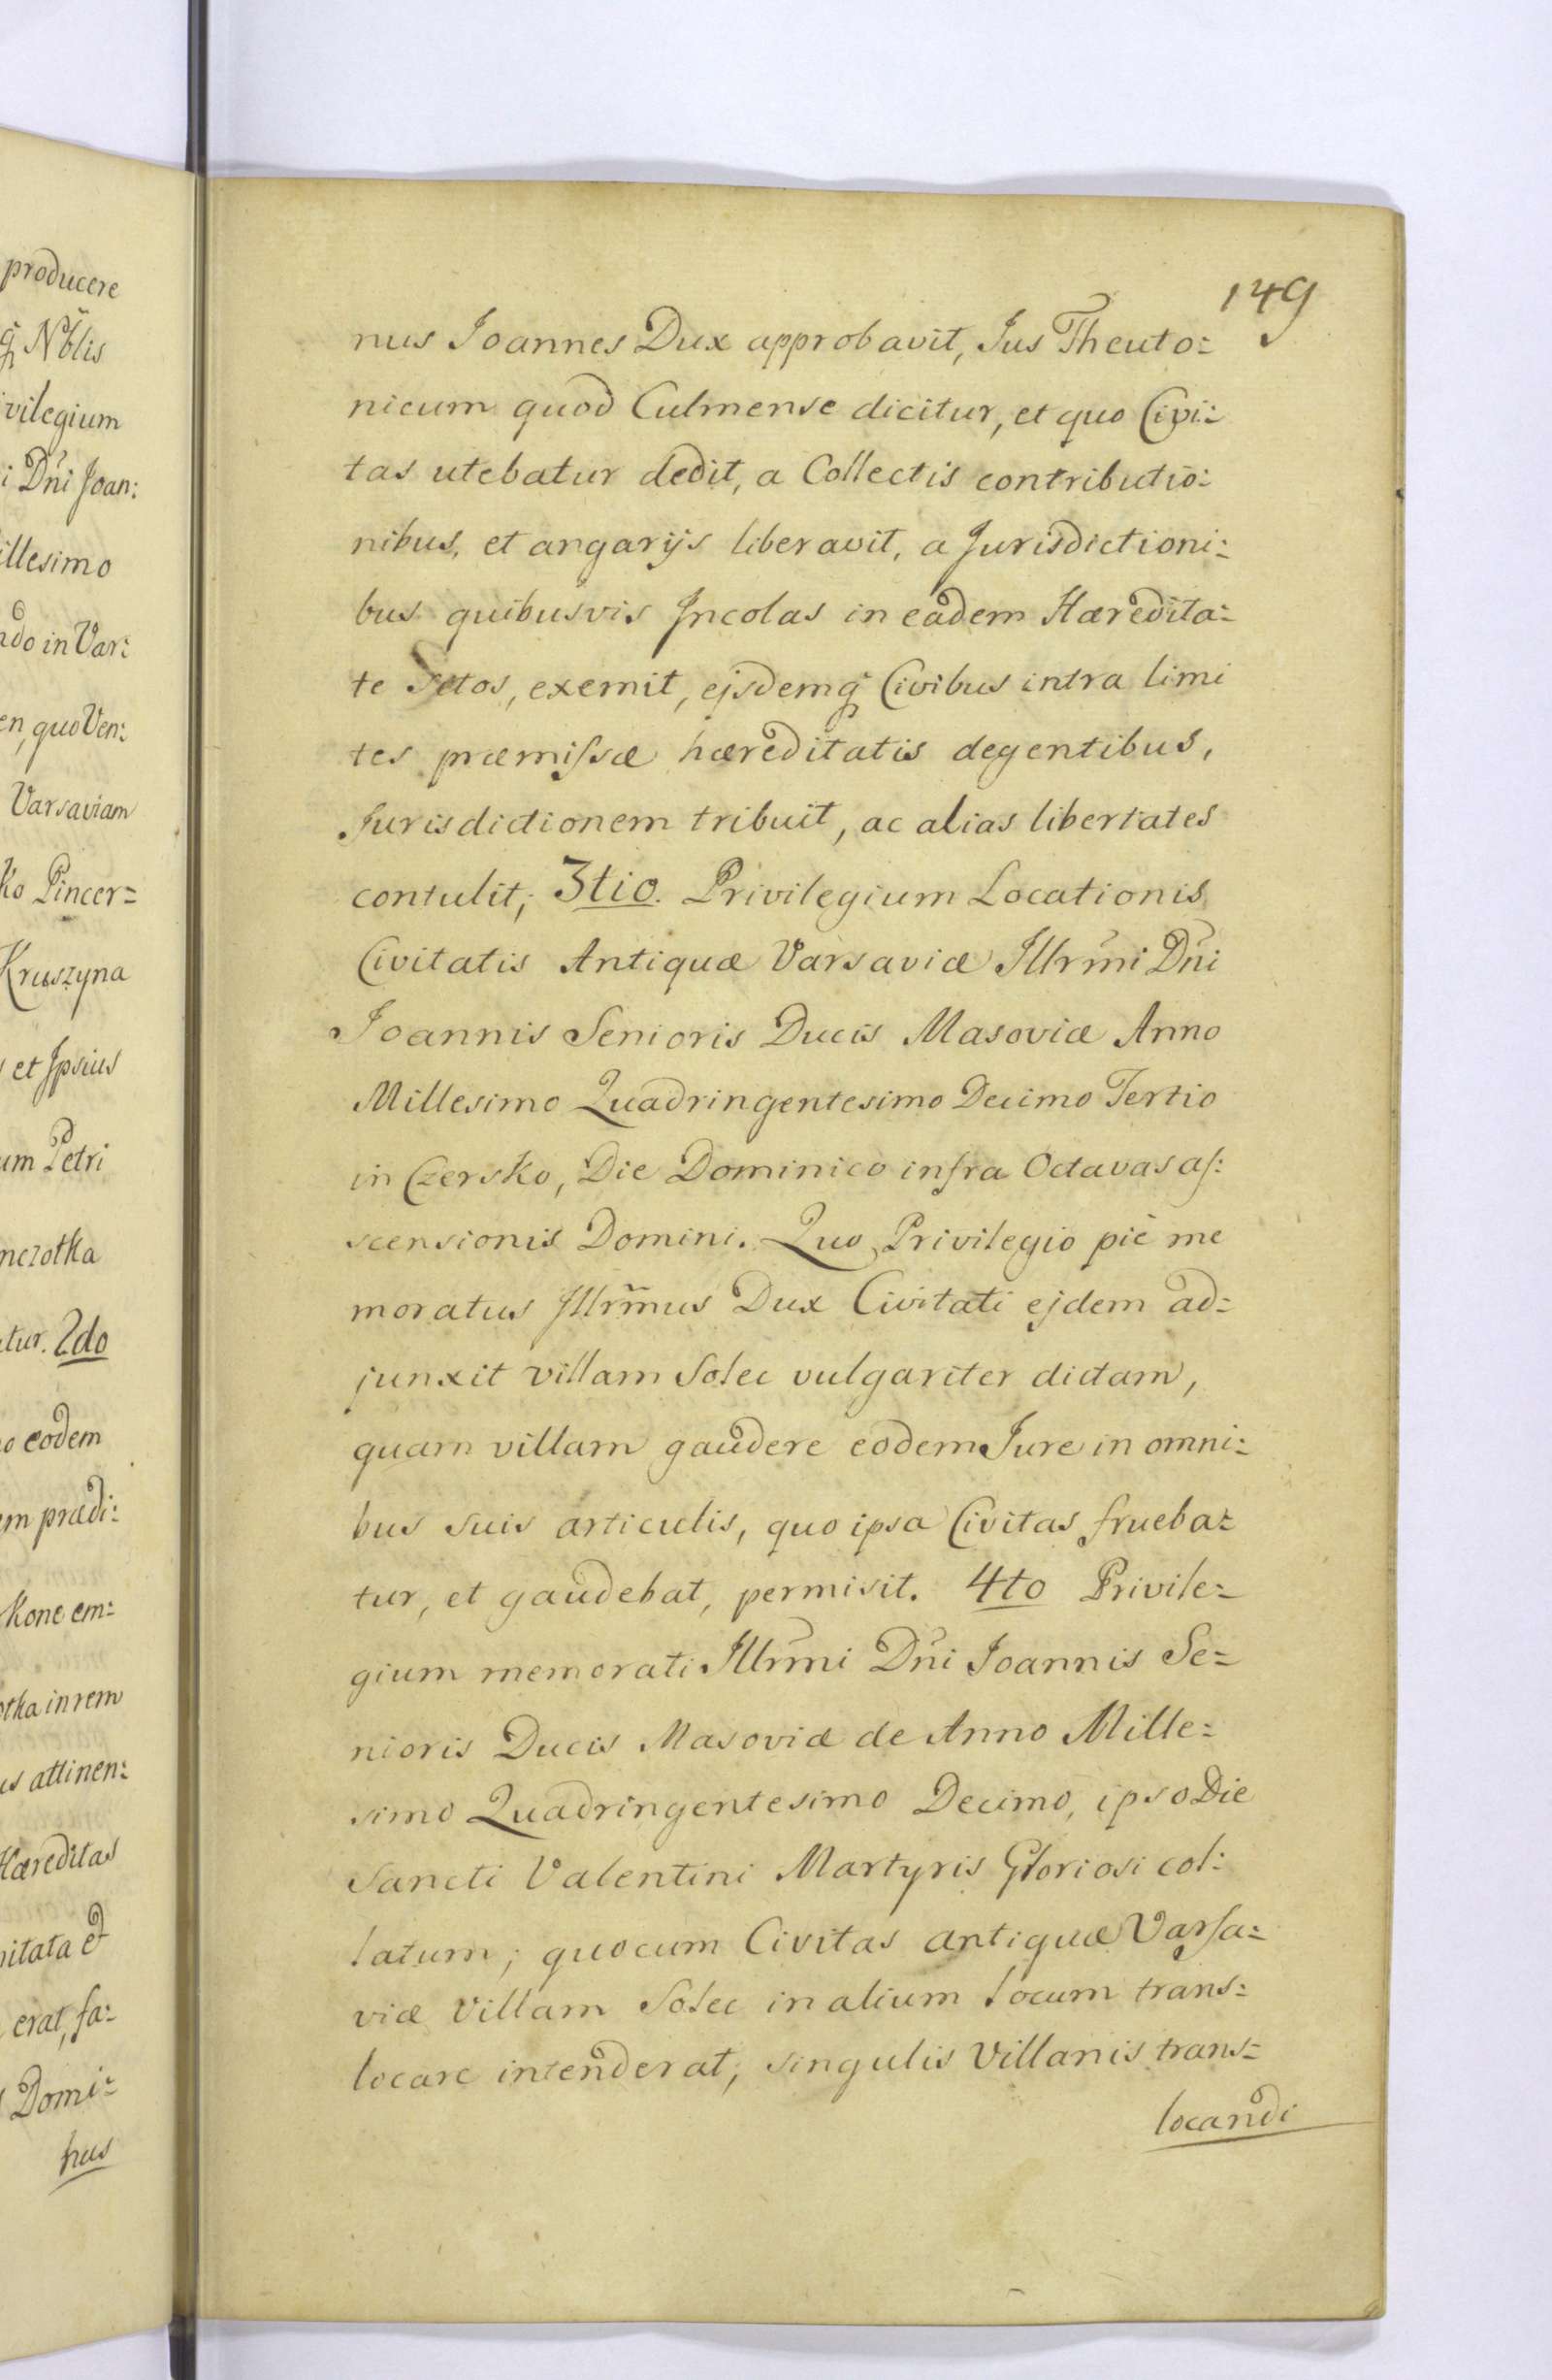 producere
Noblis
vilegium
i Dni Joan:
illesimo
do in Var:
en, quo Ven:
Varsaviam
ko Pincer=
Kruszyna
et Ipsius
um Petri
nczotka
tur. 2do
o eodem
em prædi:
kone em:
otka in rem
us attinen:
Hæreditas
nitata et
erat, fa:
Domi:
nus
149
nus Joannes Dux approbavit, Jus Theuto:
nicum quod Culmense dicitur, et quo Civi:
tas utebatur dedit, a Collectis contributio:
nibus, et angarijs liberavit, a Jurisdictioni:
bus quibusvis Incolas in eadem Hæredita:
te Setos, exemit, ejsdemq Civibus intra limi
tes præmissæ hæreditatis degentibus,
Jurisdictionem tribuit, ac alias libertates
contulit; 3tio. Privilegium Locationis
Civitatis Antiquæ Varsaviæ Illrmi Dni
Joannis Senioris Ducis Masoviæ Anno
Millesimo Quadringentesimo Decimo Tertio
in Czersko, Die Dominico infra Octavas as:
scensionis Domini. Quo Privilegio piè me
moratus Illrmus Dux Civitati ejdem ad=
junxit villam Solec vulgariter dictam,
quam villam gaudere eodem Jure in omni:
bus suis articulis, quo ipsa Civitas frueba=
tur, et gaudebat, permisit. 4to Privile=
gium memorati Illrmi Dni Joannis Se=
nioris Ducis Masoviæ de Anno Mille=
simo Quadringentesimo Decimo, ipso Die
Sancti Valentini Martyris Gloriosi col:
latum; quocum Civitas antiquæ Varsa=
viæ Villam Solec in alium locum trans=
locare intenderat, singulis Villanis trans=
locandi